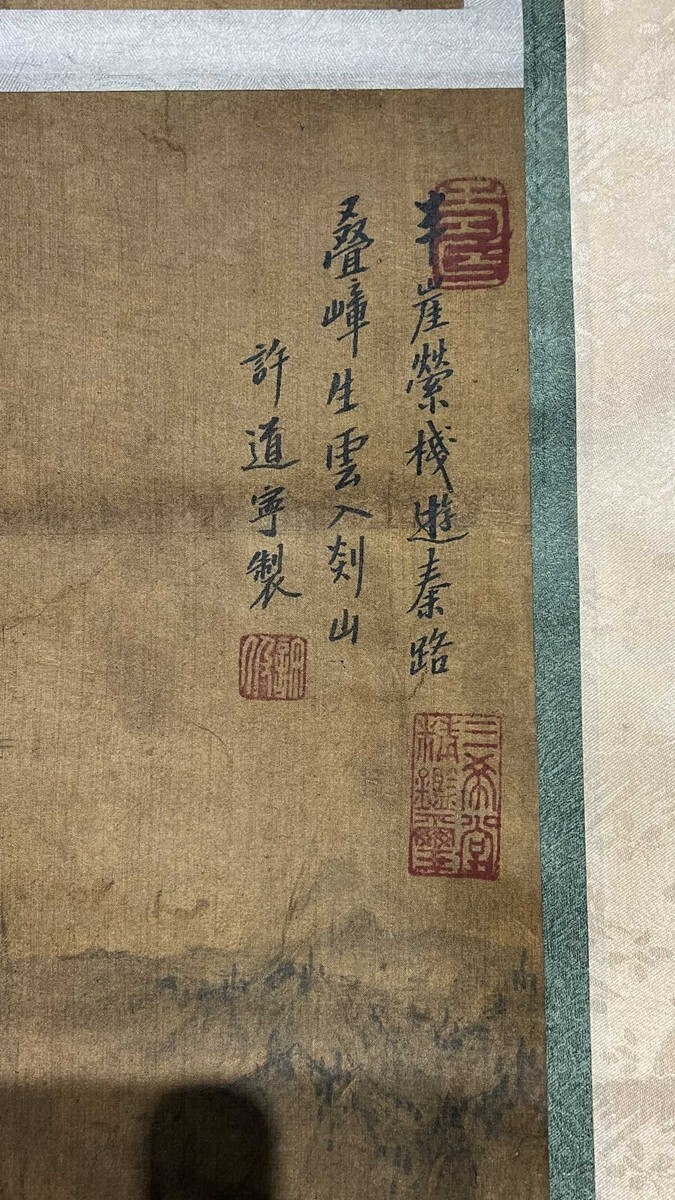 半崖縈棧遊秦路
叠嶂生雲入剡山
許道寧製
三希堂精鑑璽